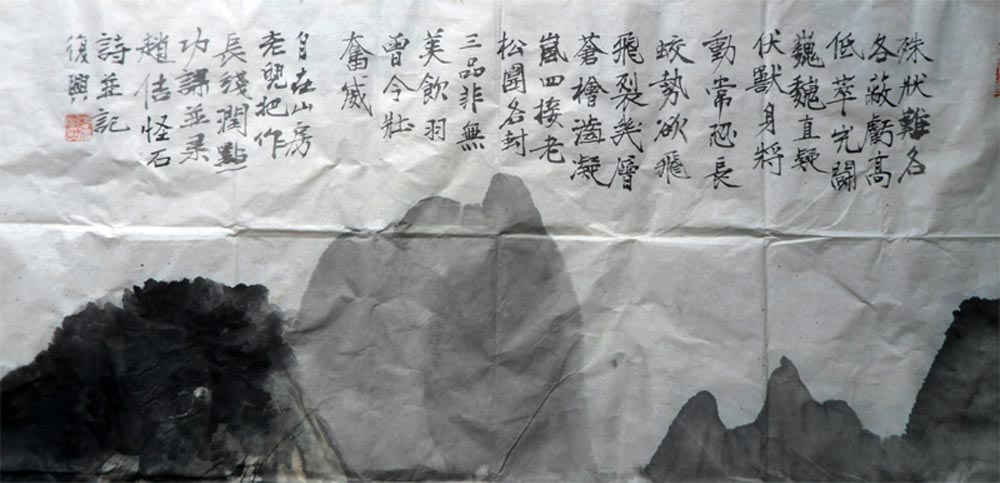 殊状難名
各蔽虧高
低萃完闘
巍巍直疑
伏獸身將
動常恐長
蛟勢欲飛
飛裂幾層
蒼檜凝
嵐四接老
松圍名封
三品非無
美飲羽
曾令壯
奮威
自在山房
老兒把作
長綫潤點
功課並录
趙佶怪石
詩並記
復興